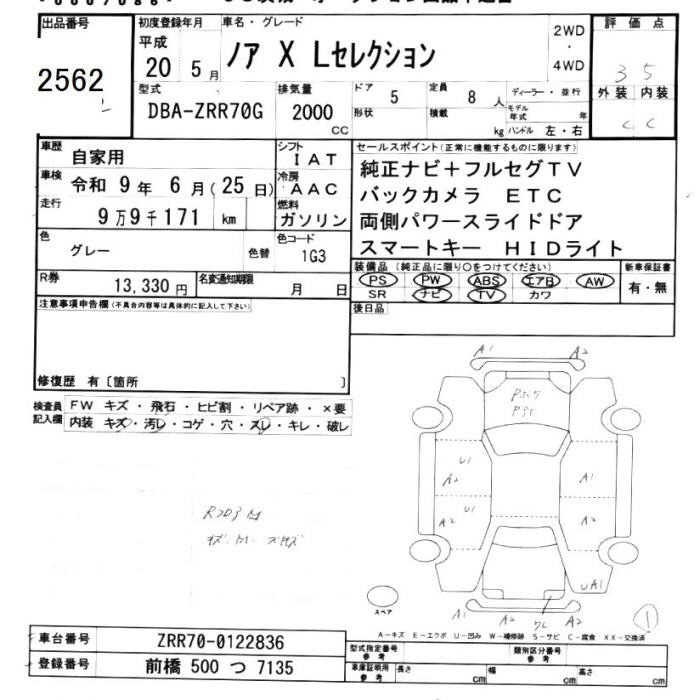 出品番号
2562
初度登録年月
平成
20 5月
車名・グレード
ノア X Lセレクション
2WD
・
4WD
評価点
3 5
外装 内装
C C
型式
DBA-ZRR70G
排気量
2000
CC
ドア
5
形状
定員
8 人
積載
kg
ディーラー・並行
モデル年式 年
ハンドル 左・右
車歴
自家用
車検
令和 9年 6月(25日)
走行
9万9千171 km
シフト
IAT
冷房
AAC
燃料
ガソリン
色
グレー
色替
色コード
1G3
R券
13,330円
名変通知期限
月 日
セールスポイント(正常に機能するものに限ります)
純正ナビ+フルセグTV
バックカメラ ETC
両側パワースライドドア
スマートキー HIDライト
装備品(純正品に限り○をつけてください)
PS PW ABS エアB AW
SR ナビ TV カワ
新車保証書
有・無
後日品
注意事項申告欄(不具合内容等は具体的に記入して下さい)
修復歴 有〔箇所 〕
検査員記入欄
FW キズ・飛石・ヒビ割・リペア跡・×要
内装 キズ・汚レ・コゲ・穴・スレ・キレ・破レ
A1 A2
U1
A2
A1
U1
A2
A2
UA1
A1
A2
A2
スペア
1
A-キズ E-エクボ U-凹み W-補修跡 S-サビ C-腐食 XX-交換済
車台番号
ZRR70-0122836
登録番号
前橋 500 つ 7135
型式指定番号
参考
類別区分番号
参考
車庫証明用
参考
長さ cm
幅 cm
高さ cm